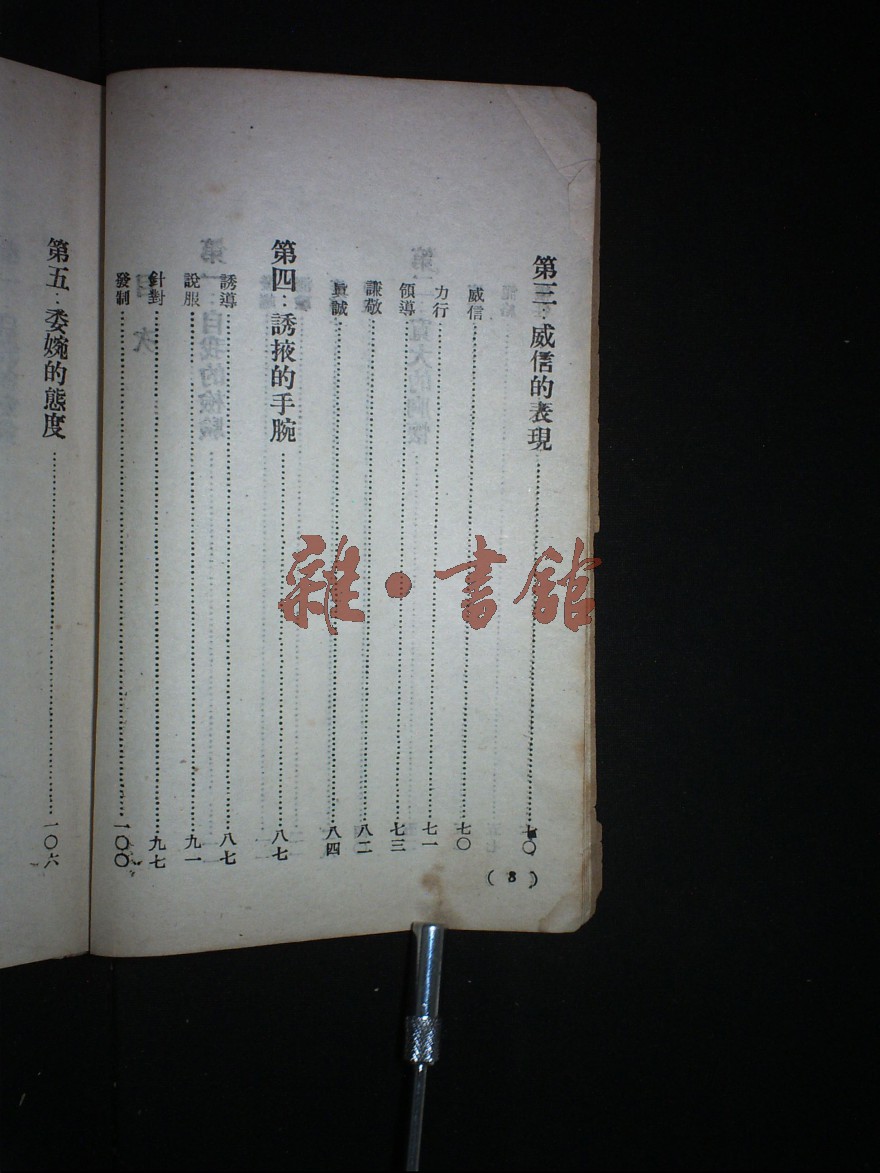 第三 威信的表現……七〇
威信……七〇
力行……七一
領導……七三
謙敬……八二
眞誠……八四
第四：誘掖的手腕……八七
誘導……八七
說服……九一
針對……九七
發制……一〇〇
( 8 )
第五：委婉的態度……一〇六
雜·書館